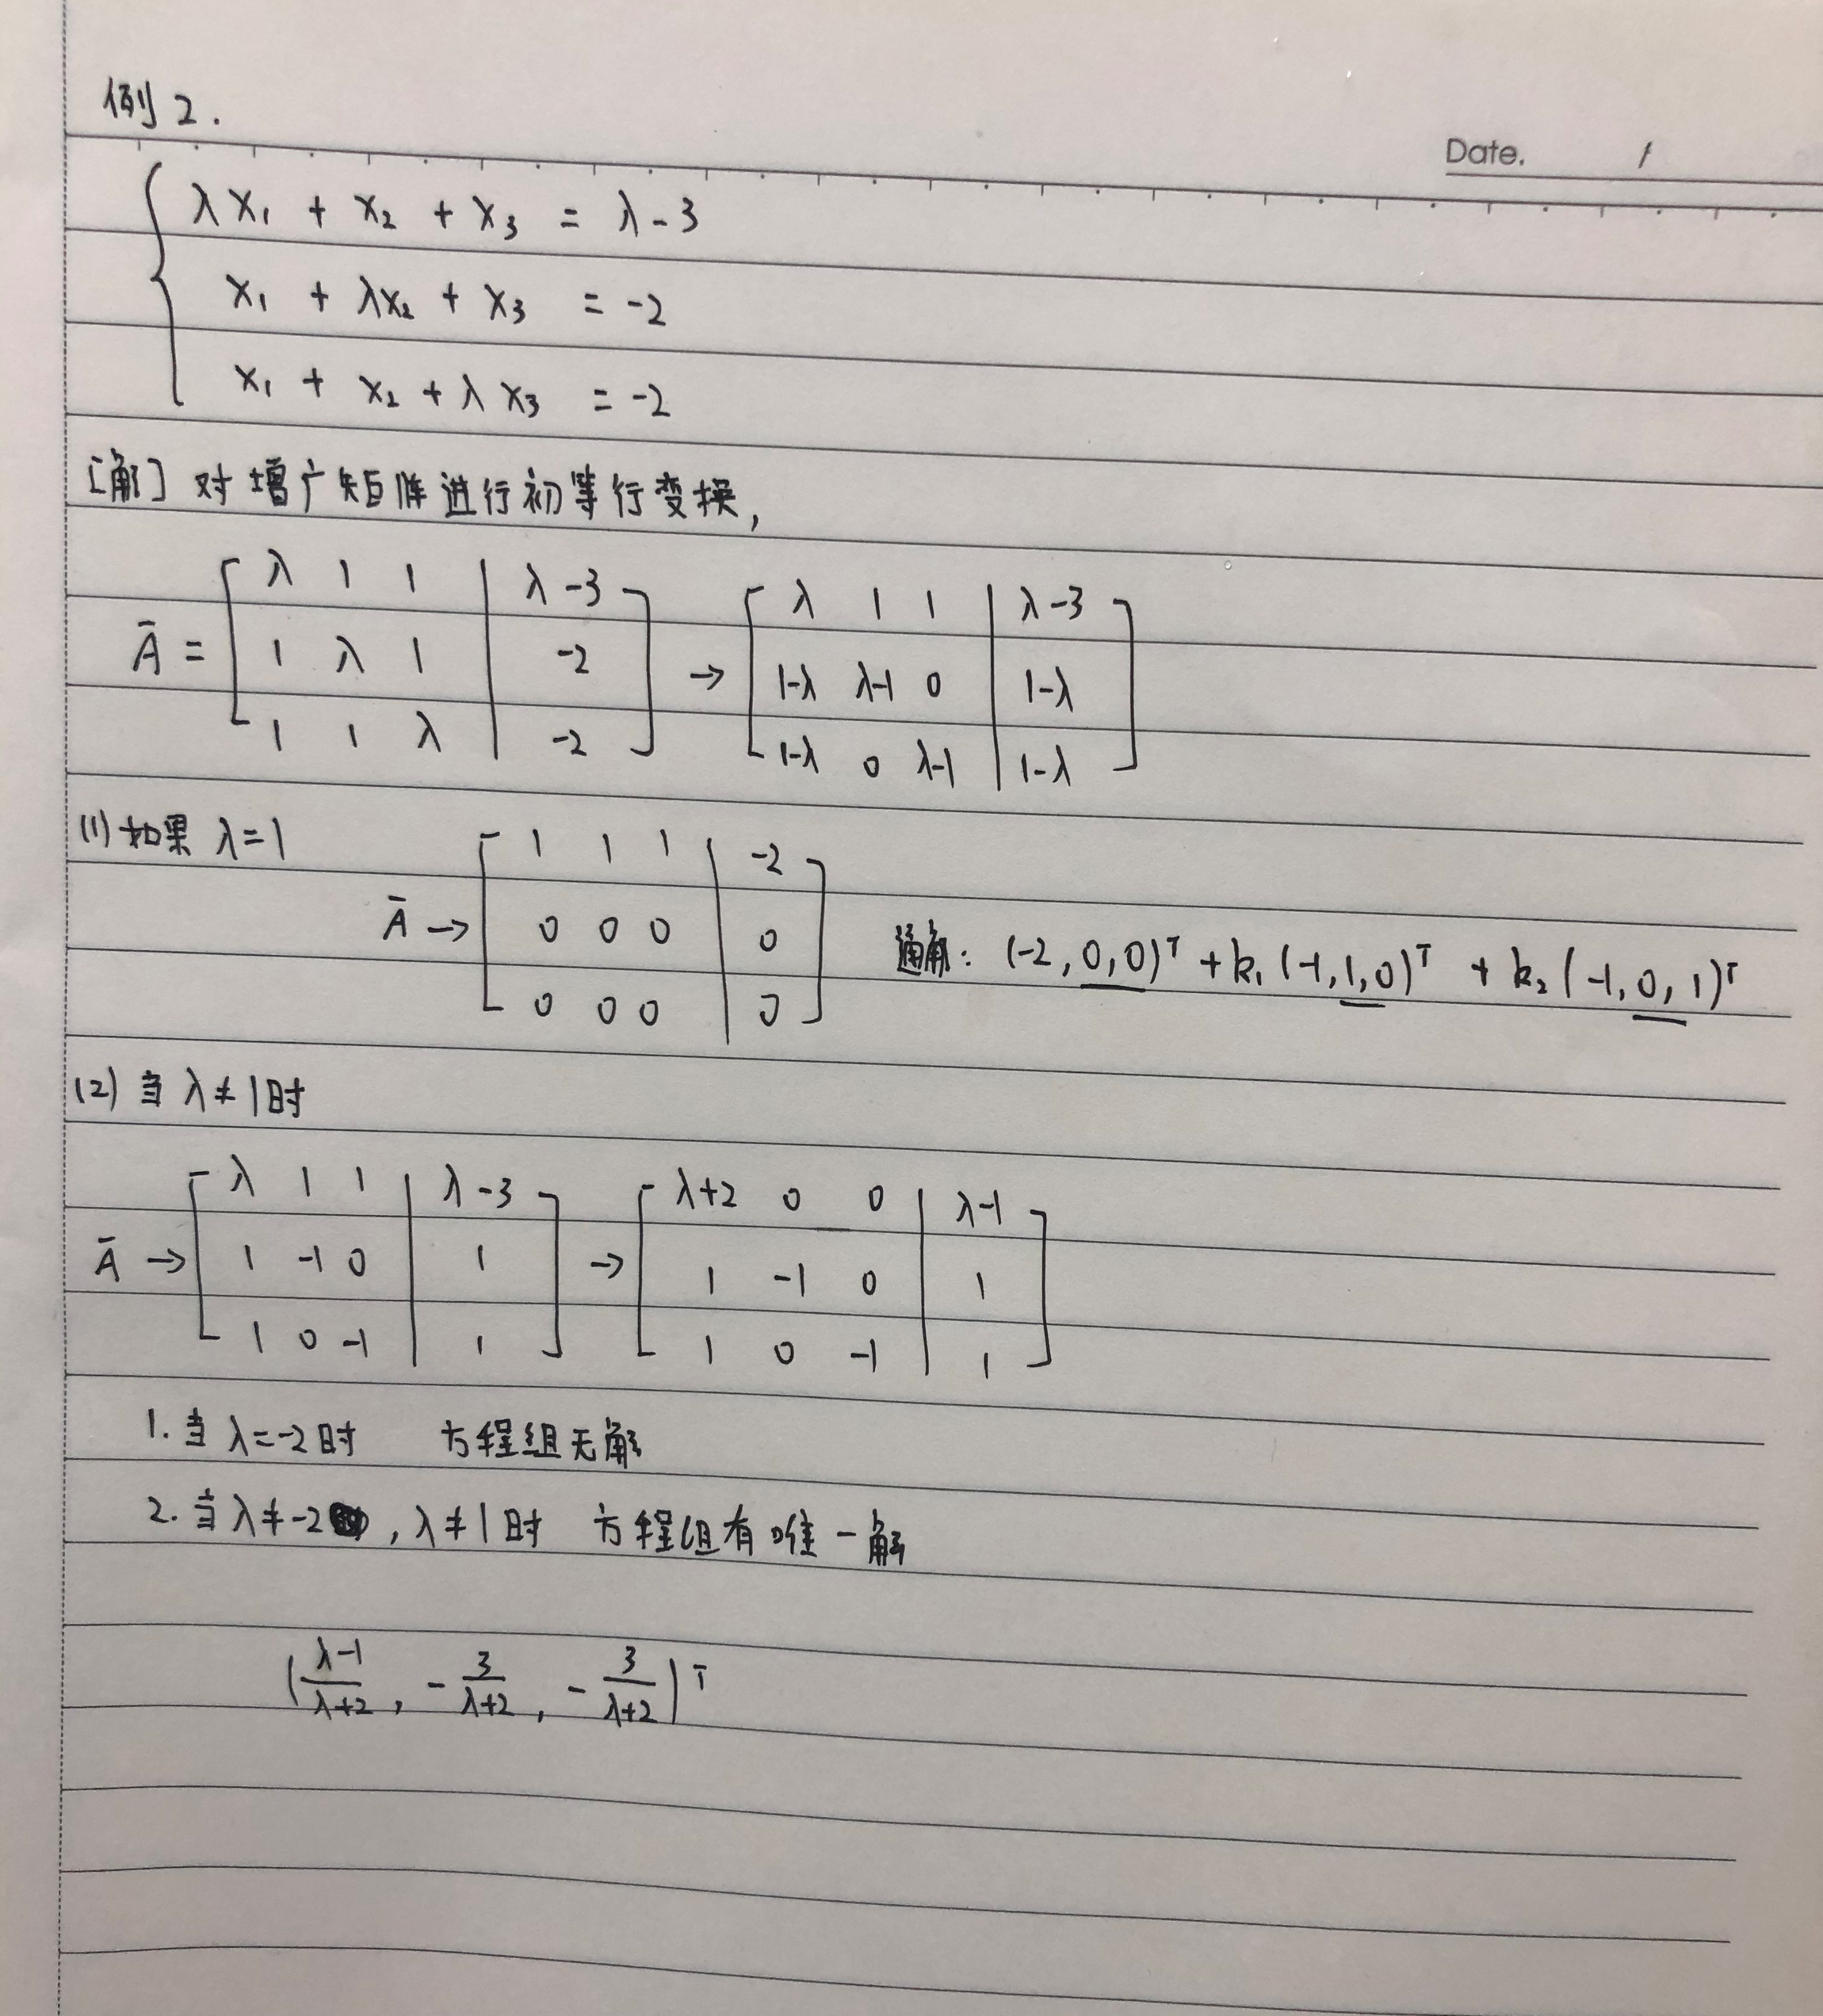 例2.
Date. /
λx₁ + x₂ + x₃ = λ-3
x₁ + λx₂ + x₃ = -2
x₁ + x₂ + λx₃ = -2
[解] 对增广矩阵进行初等行变换,
Ā = [ λ 1 1 | λ-3 ; 1 λ 1 | -2 ; 1 1 λ | -2 ] → [ λ 1 1 | λ-3 ; 1-λ λ-1 0 | 1-λ ; 1-λ 0 λ-1 | 1-λ ]
(1) 如果 λ=1
Ā → [ 1 1 1 | -2 ; 0 0 0 | 0 ; 0 0 0 | 0 ] 通解: (-2, 0, 0)ᵀ + k₁(-1, 1, 0)ᵀ + k₂(-1, 0, 1)ᵀ
(2) 当 λ≠1时
Ā → [ λ 1 1 | λ-3 ; 1 -1 0 | 1 ; 1 0 -1 | 1 ] → [ λ+2 0 0 | λ-1 ; 1 -1 0 | 1 ; 1 0 -1 | 1 ]
1. 当 λ=-2时 方程组无解
2. 当 λ≠-2, λ≠1时 方程组有唯一解
((λ-1)/(λ+2), -3/(λ+2), -3/(λ+2))ᵀ